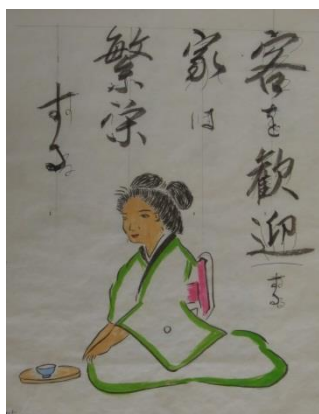 客を歓迎する
家は
繁栄
する